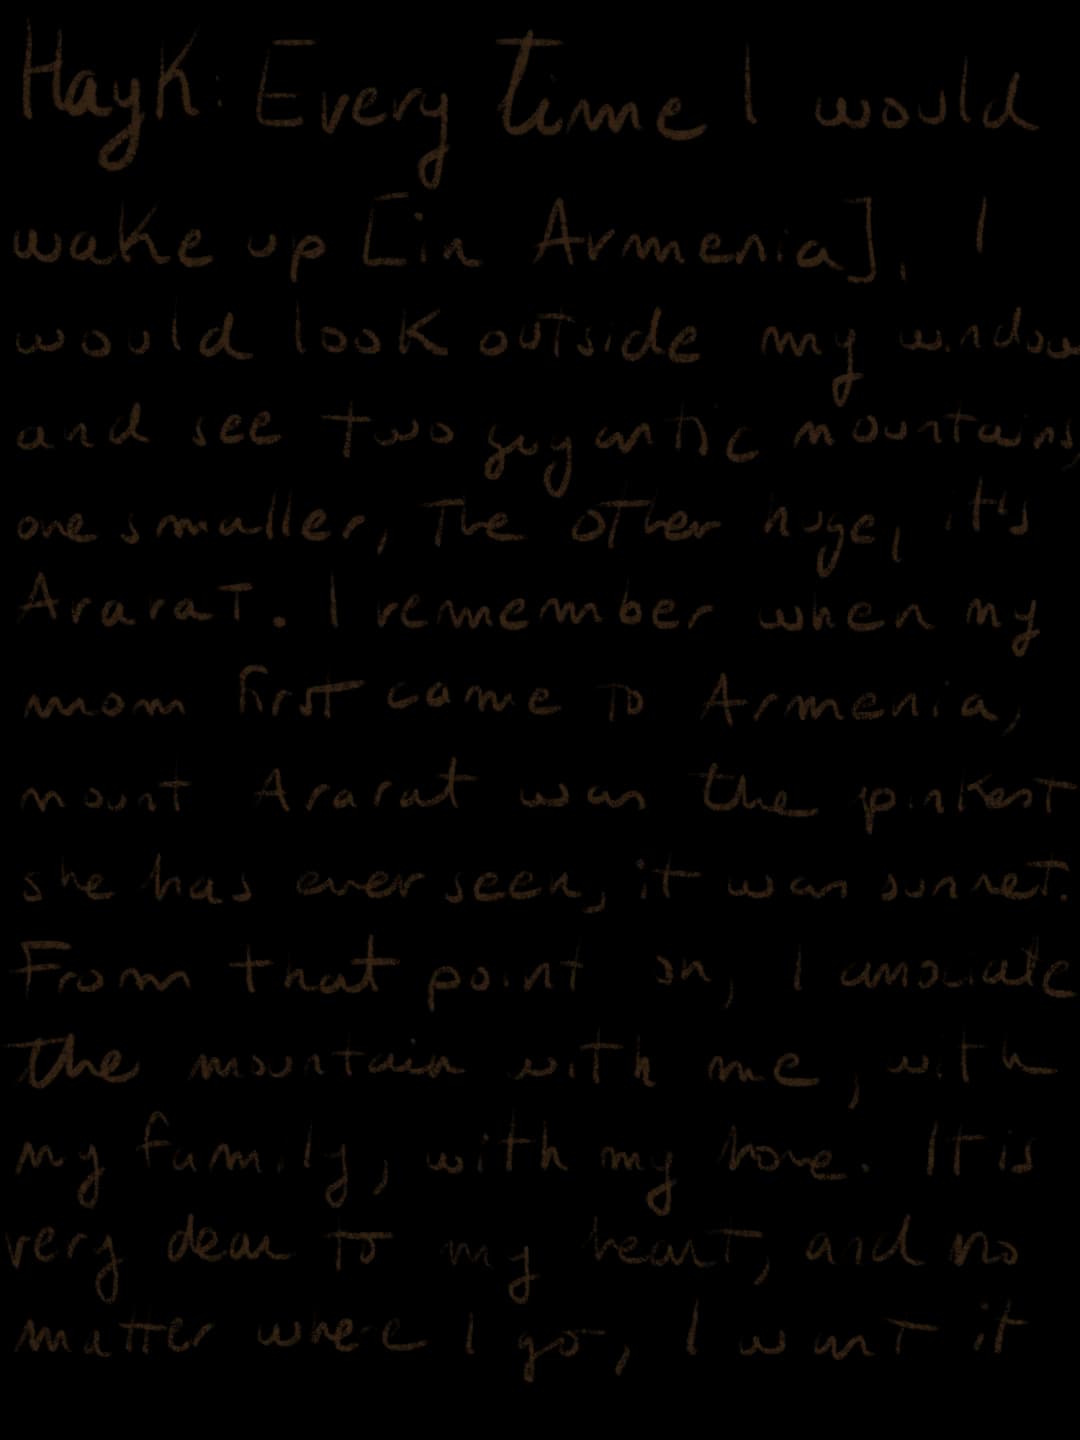 Hayk: Every time I would
wake up [in Armenia], I
would look outside my window
and see two gygantic mountains,
one smaller, the other huge, it's
Ararat. I remember when my
mom first came to Armenia,
mount Ararat was the pinkest
she has ever seen, it was sunset.
From that point on, I associate
the mountain with me, with
my family, with my home. It is
very dear to my heart, and no
matter where I go, I want it